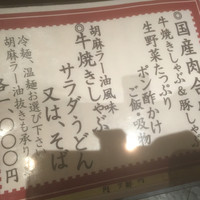 ◎国産肉合
牛焼きしゃぶ&豚しゃ
生野菜たっぷり
ポン酢かけ
ご飯・吸物
胡麻ラー油風味
◎牛焼きしゃぶ
サラダうどん
又は、そば
冷麺、温麺お選び下さ
胡麻ラー油抜きも承り
各一、〇〇〇円